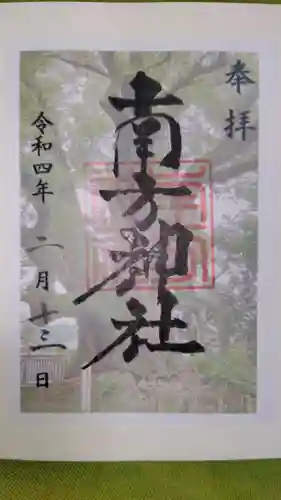 奉拝
南方神社
令和四年二月十三日